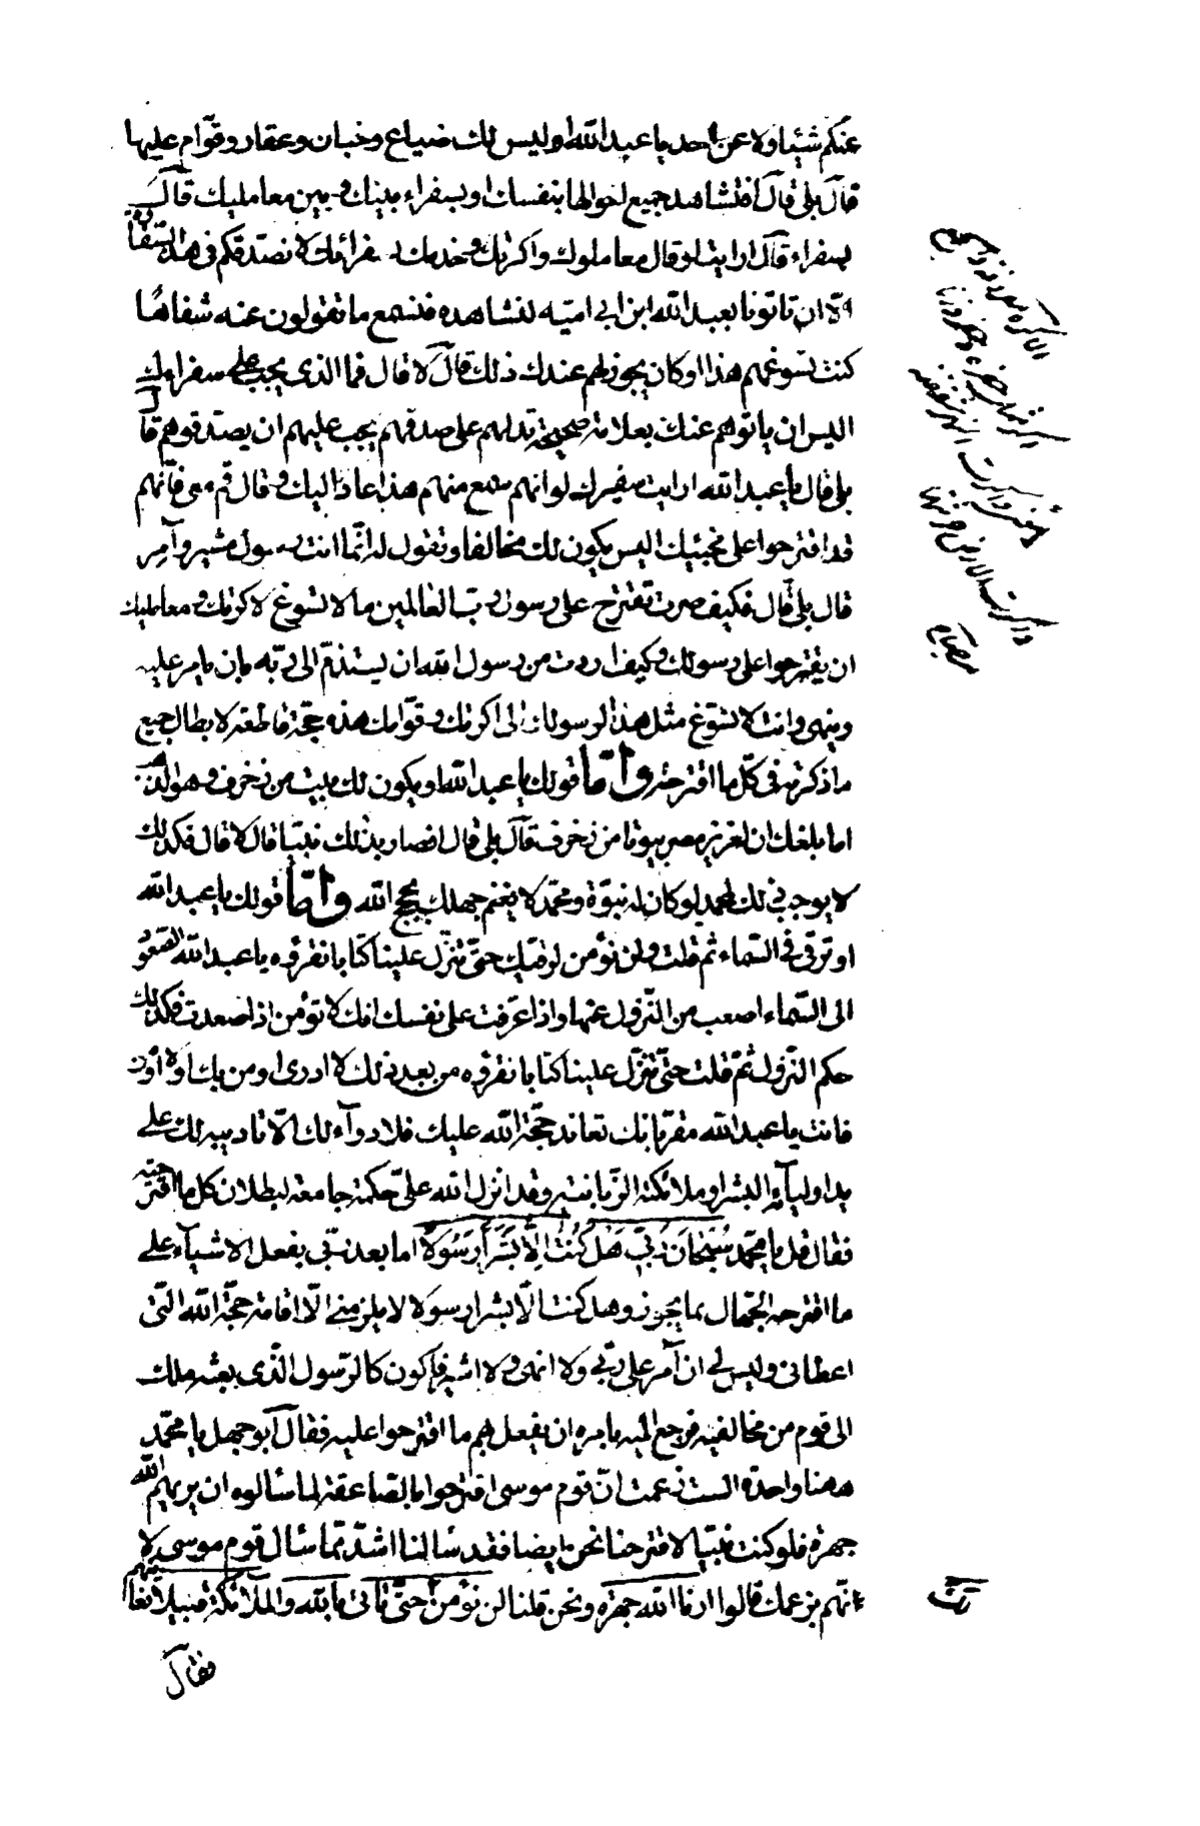 عنكم شيئا ولا عن احد يا عبد الله اوليس لك ضياع وجنان وعقار وقوّام عليها
قال بلى قال افتشاهد جميع احوالها بنفسك او بسفراء بينك وبين معامليك قال
بسفراء قال ارايت لو قال معاملوك واكرتك وخدمك لسفرائك لا نصدقكم فى هذه السفا
رة ان تاتونا بعبد الله ابن ابى اميّه لنشاهده فنسمع ما تقولون عنه شفاهًا
كنت تسوغهم هذا اوكان يجوز لهم عندك ذلك قال لا قال فما الذى يجب على سفراءك
اليس ان ياتوهم عنك بعلامة صحيحة تدلهم على صدقهم يجب عليهم ان يصدقوهم قال
بلى قال يا عبد الله ارايت سفيرك لو انهم سمع منهم هذا عاد اليك وقال قم معى فانّهم
قد اقترحوا على مجيئك اليس يكون لك مخالفا وتقول له انّما انت رسول مشير وآمر
قال بلى قال فكيف صرت تقترح على رسول ربّ العالمين ما لا تسوغ لاكرتك ومعامليك
ان يقترحوا على رسولك وكيف اردت من رسول الله ان يستذمّ الى ربّه بان يامر عليه
وينهى وانت لا تسوّغ مثل هذا لرسولك الى اكرتك وقوّامك هذه حجّة قاطعة لابطال جميع
ما ذكرته فى كلّ ما اقترحته وامّا قولك يا عبد الله او يكون لك بيت من زخرف وهو الذهب
اما بلغك ان لعزيز مصر بيوتا من زخرف قال بلى قال افصار بذلك نبيّا قال لا قال فكذلك
لا يوجب ذلك لمحمد لو كان له نبوّة ومحمّد لا يغنم جهلك بحجج الله وامّا قولك يا عبد الله
او ترقى فى السّماء ثم قلت ولن نؤمن لرقيّك حتّى تنزّل علينا كتابا نقرؤه يا عبد الله الصّعود
الى السّماء اصعب من النّزول عنها واذا اعترفت على نفسك انك لا تؤمن اذا صعدت فكذلك
حكم النّزول ثمّ قلت حتّى تنزّل علينا كتابا نقرؤه من بعد ذلك لا ادرى اومن بك اولا اؤمن
فانت يا عبد الله مقرّ بانك تعاند حجّة الله عليك فلا دوآء لك الّا تاديبه لك على
يد اوليآئه البشر او ملائكته الزّبانية وقد انزل الله علىّ حكمة جامعة لبطلان كل ما اقترحته
فقال قل يا محمّد سُبْحانَ رَبّي هَلْ كُنْتُ اِلّا بَشَرًا رَسُولًا ما ابعد ربّى يفعل الاشيآء على
ما اقترحه الجهّال بما يجوز وهل كنت الّا بشرا رسولا لا يلزمنى الّا اقامة حجّة الله الّتى
اعطانى وليس لى ان آمر على ربّى ولا انهى ولا اشير فاكون كالرّسول الّذى بعثه ملك
الى قوم من مخالفيه فرجع اليه يامره ان يفعل بهم ما اقترحوا عليه فقال ابو جهل يا محمّد
ههنا واحدة الست زعمت انّ قوم موسى احترقوا بالصّاعقة لما سألوه ان يريهم الله
جهرة فلو كنت نبيّا لاحترقنا نحن ايضا فقد سألنا اشدّ ممّا سأل قوم موسى لا
نّهم بزعمك قالوا ارنا الله جهرة ونحن قلنا لن نؤمن حتّى تأتى بالله والملآئكة قبيلا نعاينهم
فقال